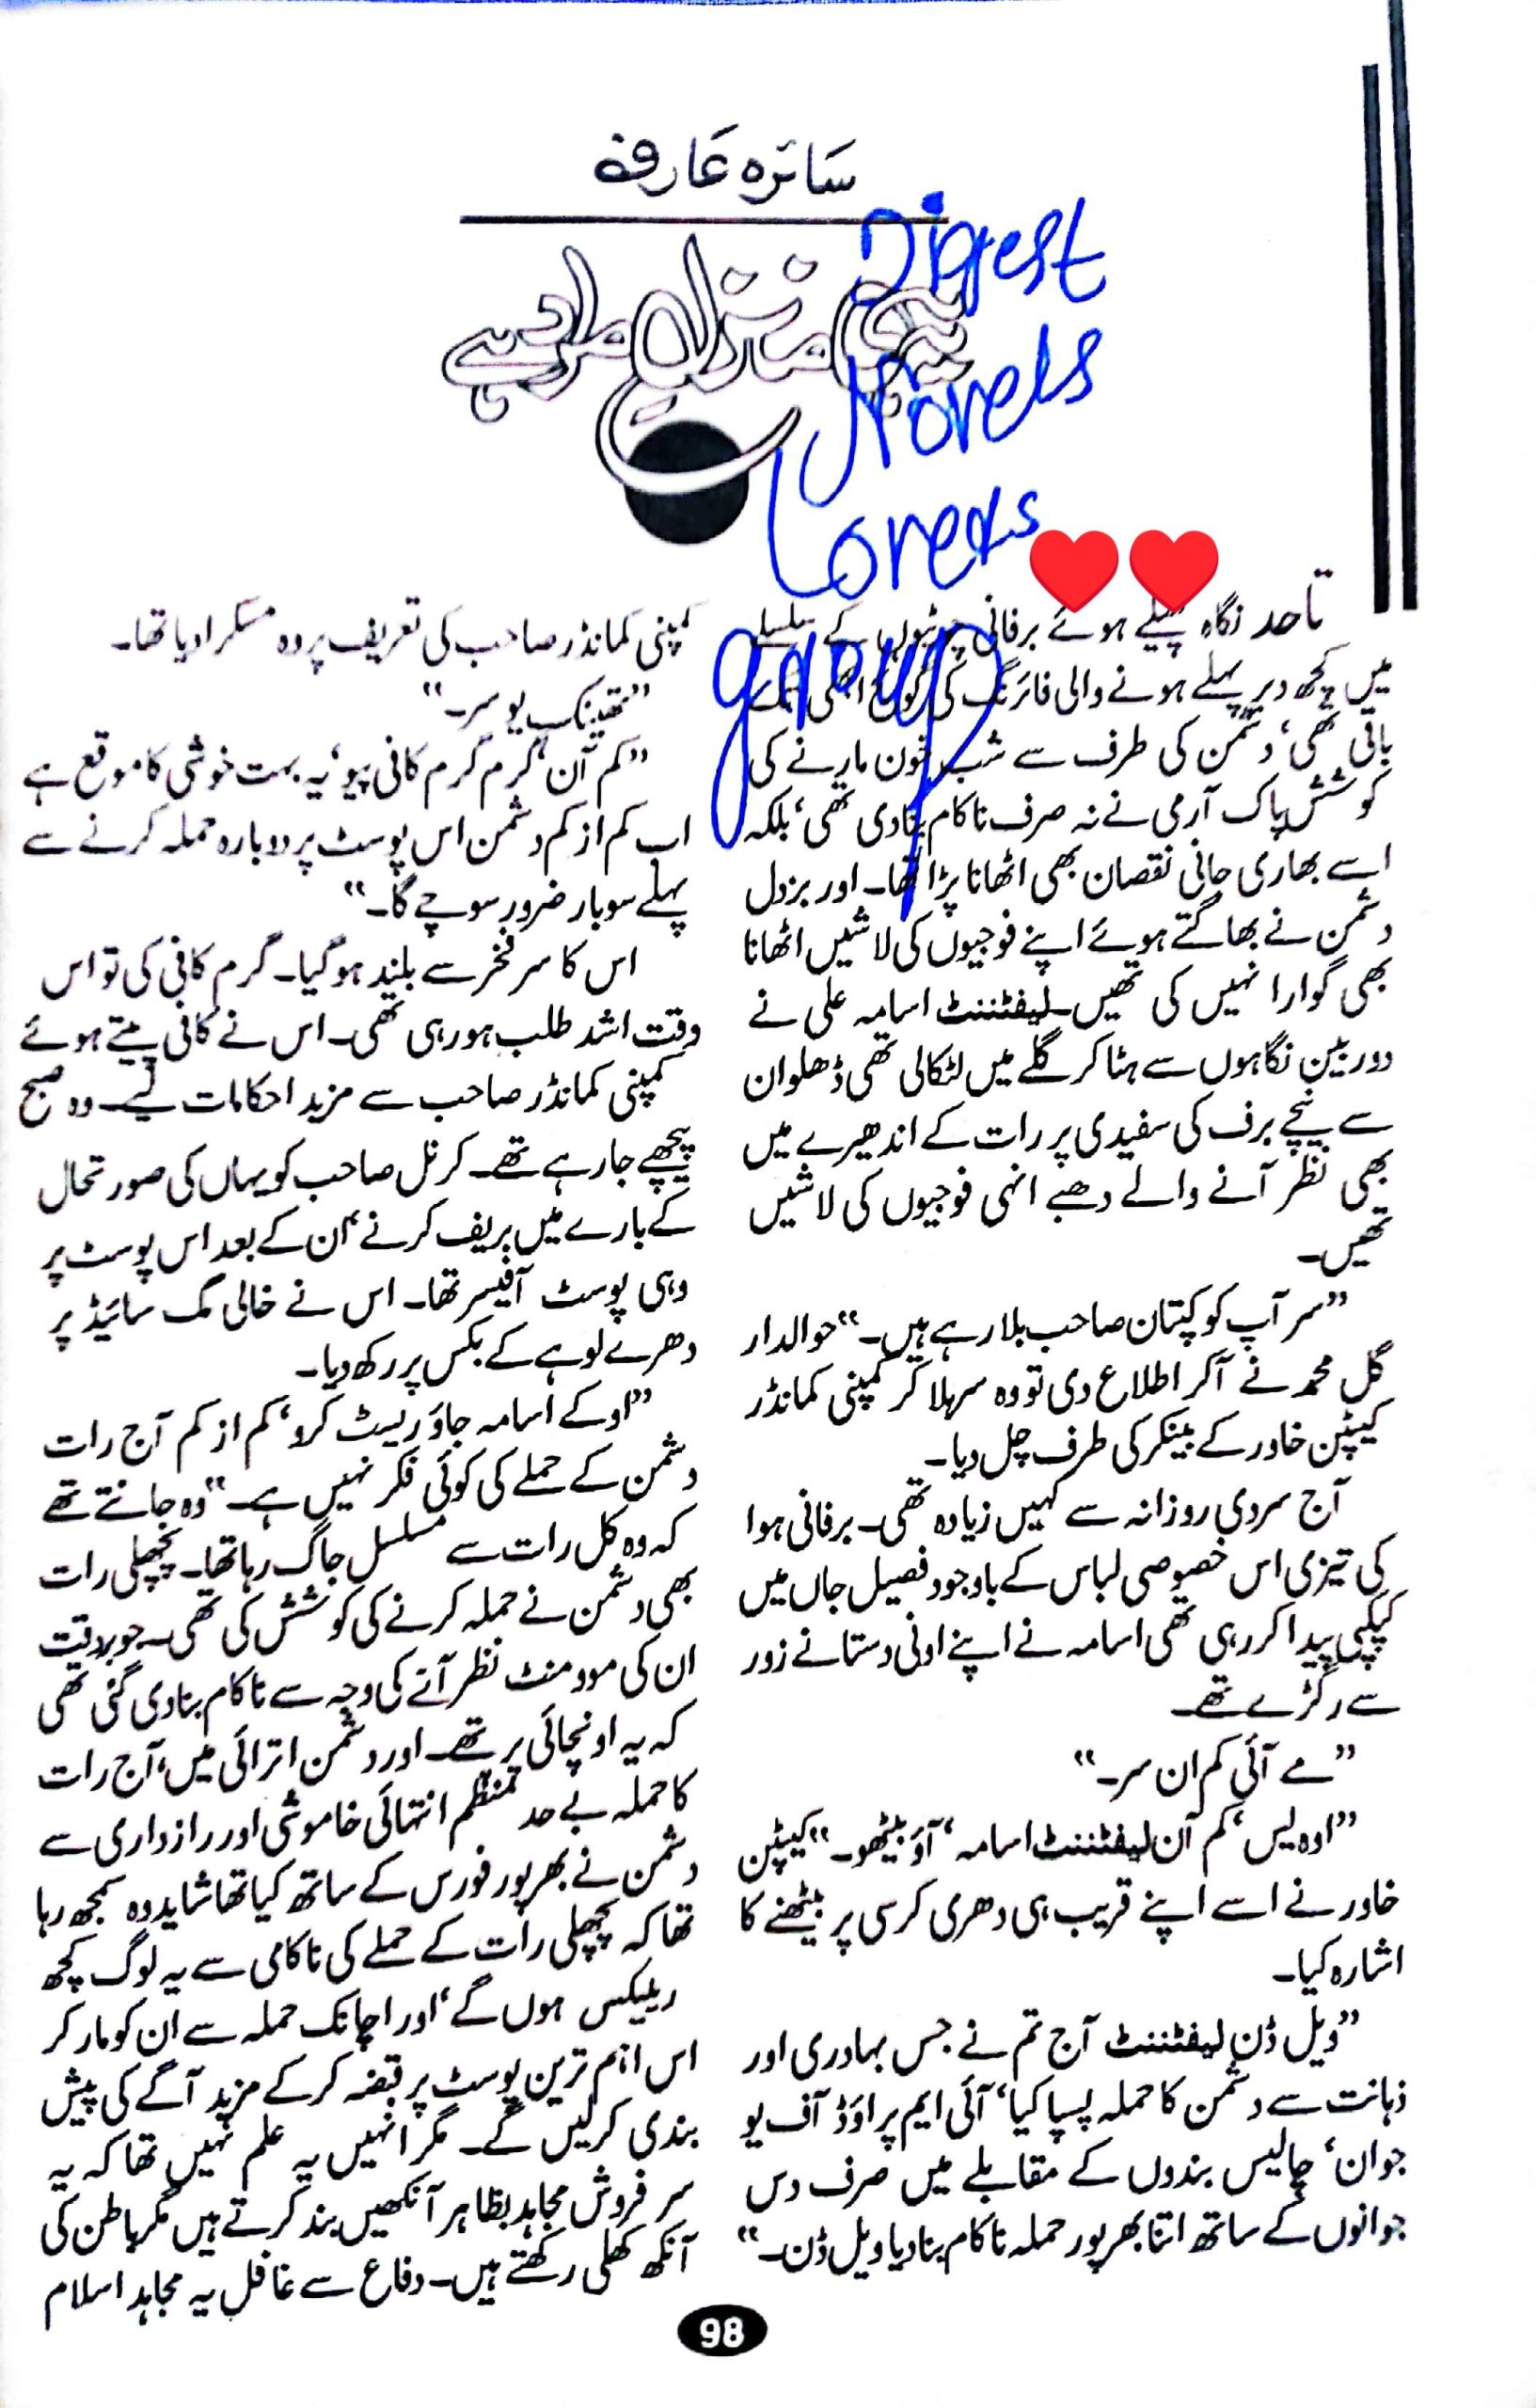 سائرہ عارف
یہی منزل مراد ہے
Digest
Novels
Lovers
group
تاحد نگاہ پھیلے ہوئے برفانی چوٹیوں کے سلسلے
میں کچھ دیر پہلے ہونے والی فائرنگ کی گونج ابھی تک
باقی تھی، دشمن کی طرف سے شب خون مارنے کی
کوشش پاک آرمی نے نہ صرف ناکام بنا دی تھی، بلکہ
اسے بھاری جانی نقصان بھی اٹھانا پڑا تھا۔ اور بزدل
دشمن نے بھاگتے ہوئے اپنے فوجیوں کی لاشیں اٹھانا
بھی گوارا نہیں کی تھیں۔ لیفٹننٹ اسامہ علی نے
دوربین نگاہوں سے ہٹا کر گلے میں لٹکالی تھی ڈھلوان
سے نیچے برف کی سفیدی پر رات کے اندھیرے میں
بھی نظر آنے والے دھبے انہی فوجیوں کی لاشیں
تھیں۔
”سر آپ کو کپتان صاحب بلا رہے ہیں۔“ حوالدار
گل محمد نے آکر اطلاع دی تو وہ سرہلا کر کمپنی کمانڈر
کیپٹن خاور کے بینکر کی طرف چل دیا۔
آج سردی روزانہ سے کہیں زیادہ تھی۔ برفانی ہوا
کی تیزی اس خصوصی لباس کے باوجود فصیل جاں میں
کپکپی پیدا کر رہی تھی اسامہ نے اپنے اونی دستانے زور
سے رگڑے تھے۔
”مے آئی کم ان سر۔“
”اوہ یس، کم آن لیفٹننٹ اسامہ، آؤ بیٹھو۔“ کیپٹن
خاور نے اسے اپنے قریب ہی دھری کرسی پر بیٹھنے کا
اشارہ کیا۔
”ویل ڈن لیفٹننٹ آج تم نے جس بہادری اور
ذہانت سے دشمن کا حملہ پسپا کیا، آئی ایم پراؤڈ آف یو
جوان، چالیس بندوں کے مقابلے میں صرف دس
جوانوں کے ساتھ اتنا بھرپور حملہ ناکام بنا دیا ویل ڈن۔“
کمپنی کمانڈر صاحب کی تعریف پر وہ مسکرا دیا تھا۔
”تھینک یو سر۔“
”کم آن، گرم گرم کافی پیو، یہ بہت خوشی کا موقع ہے
اب کم از کم دشمن اس پوسٹ پر دوبارہ حملہ کرنے سے
پہلے سو بار ضرور سوچے گا۔“
اس کا سر فخر سے بلند ہو گیا۔ گرم کافی کی تو اس
وقت اشد طلب ہو رہی تھی۔ اس نے کافی پیتے ہوئے
کمپنی کمانڈر صاحب سے مزید احکامات لیے۔ وہ صبح
پیچھے جا رہے تھے۔ کرنل صاحب کو یہاں کی صورتحال
کے بارے میں بریف کرنے، ان کے بعد اس پوسٹ پر
وہی پوسٹ آفیسر تھا۔ اس نے خالی مگ سائیڈ پر
دھرے لوہے کے بکس پر رکھ دیا۔
”اوکے اسامہ جاؤ ریسٹ کرو، کم از کم آج رات
دشمن کے حملے کی کوئی فکر نہیں ہے۔“ وہ جانتے تھے
کہ وہ کل رات سے مسلسل جاگ رہا تھا۔ پچھلی رات
بھی دشمن نے حملہ کرنے کی کوشش کی تھی۔ جو بروقت
ان کی موومنٹ نظر آنے کی وجہ سے ناکام بنا دی گئی تھی
کہ یہ اونچائی پر تھے۔ اور دشمن اترائی میں، آج رات
کا حملہ بے حد منظم انتہائی خاموشی اور رازداری سے
دشمن نے بھرپور فورس کے ساتھ کیا تھا شاید وہ سمجھ رہا
تھا کہ پچھلی رات کے حملے کی ناکامی سے یہ لوگ کچھ
ریلیکس ہوں گے، اور اچانک حملہ سے ان کو مار کر
اس اہم ترین پوسٹ پر قبضہ کر کے مزید آگے کی پیش
بندی کر لیں گے۔ مگر انہیں یہ علم نہیں تھا کہ یہ
سرفروش مجاہد بظاہر آنکھیں بند کرتے ہیں مگر باطن کی
آنکھ کھلی رکھتے ہیں۔ دفاع سے غافل یہ مجاہد اسلام
98